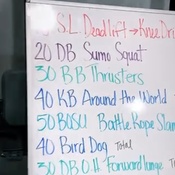 S.L. Deadlift → Knee Dri
20 DB Sumo Squat
30 BB Thrusters
40 KB Around the World
50 BOSU Battle Rope Slam
40 Bird Dog Total
30 DB O.H Forward lunge